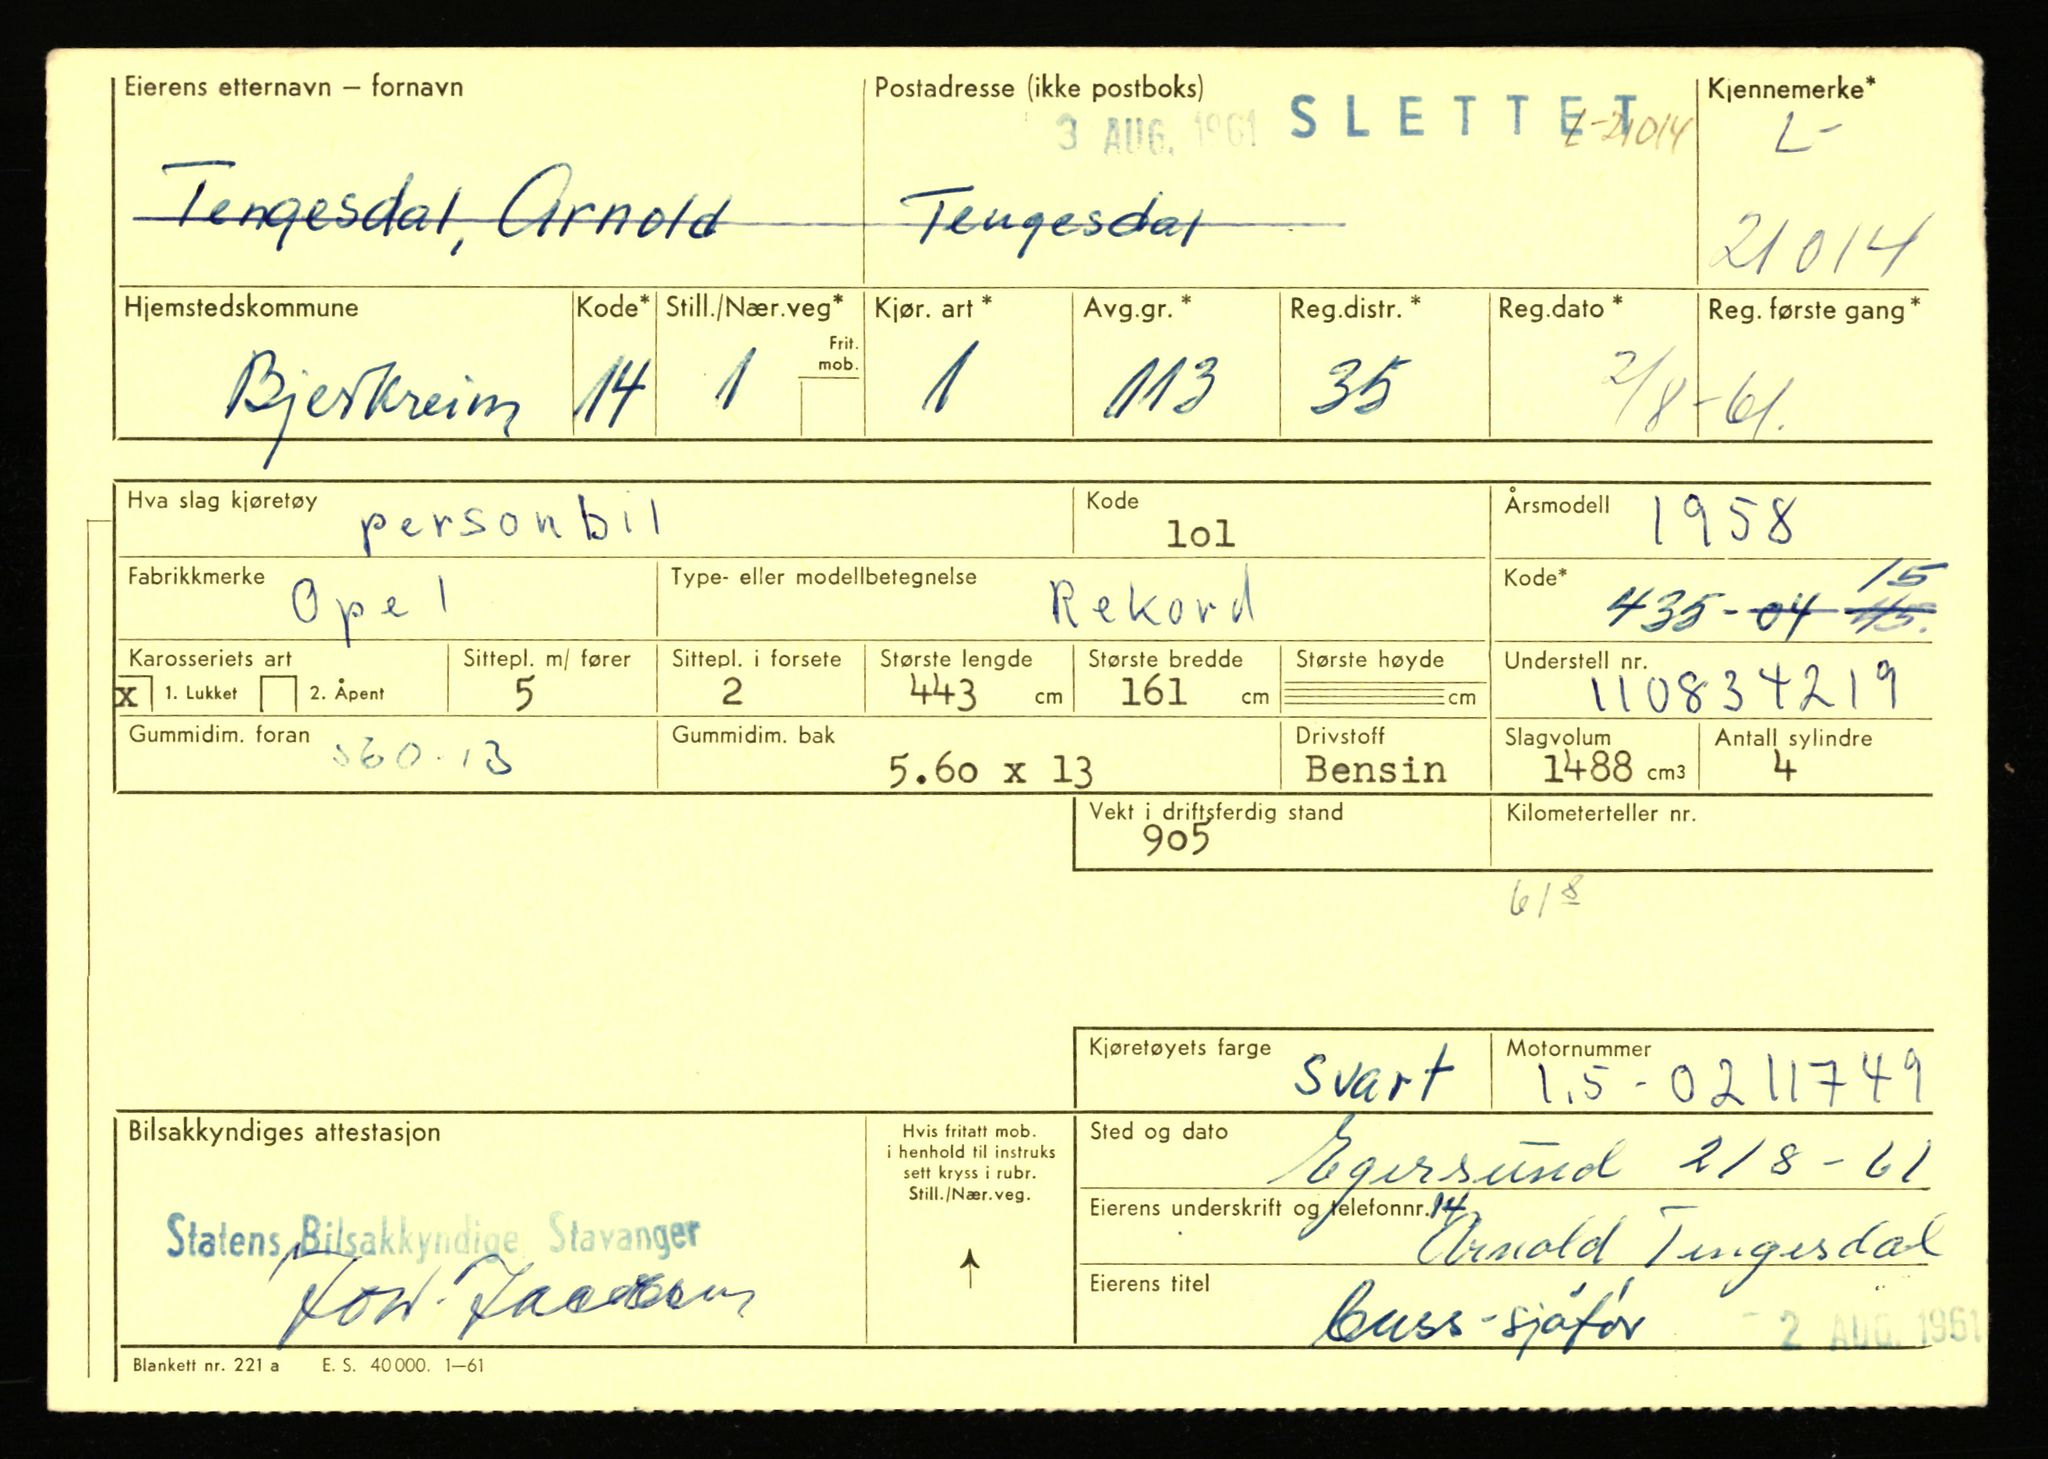 Eierens etternavn – fornavn Postadresse (ikke postboks) Kjennemerke*
3 AUG. 1961 SLETTET L-21014 L-
Tengesdal, Arnold Tengesdal
21014
Hjemstedskommune Kode* Still./Nær.veg* Kjør. art * Avg.gr. * Reg.distr. * Reg.dato * Reg. første gang*
Frit.
mob.
Bjerkreim 14 1 1 113 35 2/8-61.
Hva slag kjøretøy personbil Kode 101 Årsmodell 1958
Fabrikkmerke Opel Type- eller modellbetegnelse Rekord Kode* 435-04 45. 15
Karosseriets art Sittepl. m/ fører Sittepl. i forsete Største lengde Største bredde Største høyde Understell nr.
x 1. Lukket 2. Åpent 5 2 443 cm 161 cm cm 110834219
Gummidim. foran 560-13 Gummidim. bak Drivstoff Slagvolum Antall sylindre
5.60 x 13 Bensin 1488 cm3 4
Vekt i driftsferdig stand Kilometerteller nr.
905
61 8
Kjøretøyets farge svart Motornummer
1,5-0211749
Bilsakkyndiges attestasjon Hvis fritatt mob.
i henhold til instruks
sett kryss i rubr.
Still./Nær.veg.
Sted og dato Egersund 2/8-61
Eierens underskrift og telefonnr. 14
Arnold Tengesdal
Statens Bilsakkyndige, Stavanger
Eierens titel
Buss-sjåfør - 2 AUG. 1961
Blankett nr. 221 a E. S. 40 000. 1–61